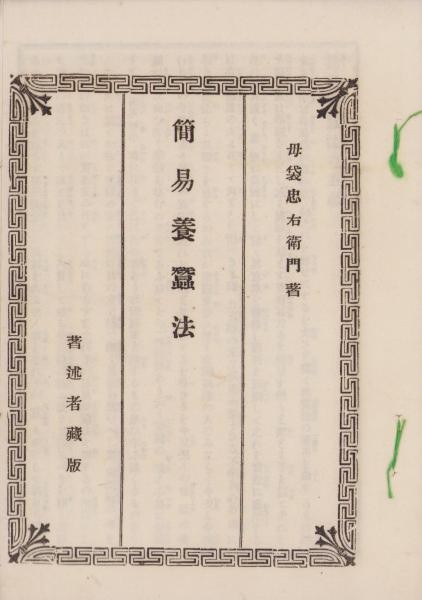 毋袋忠右衛門著
簡易養蠶法
著述者藏版